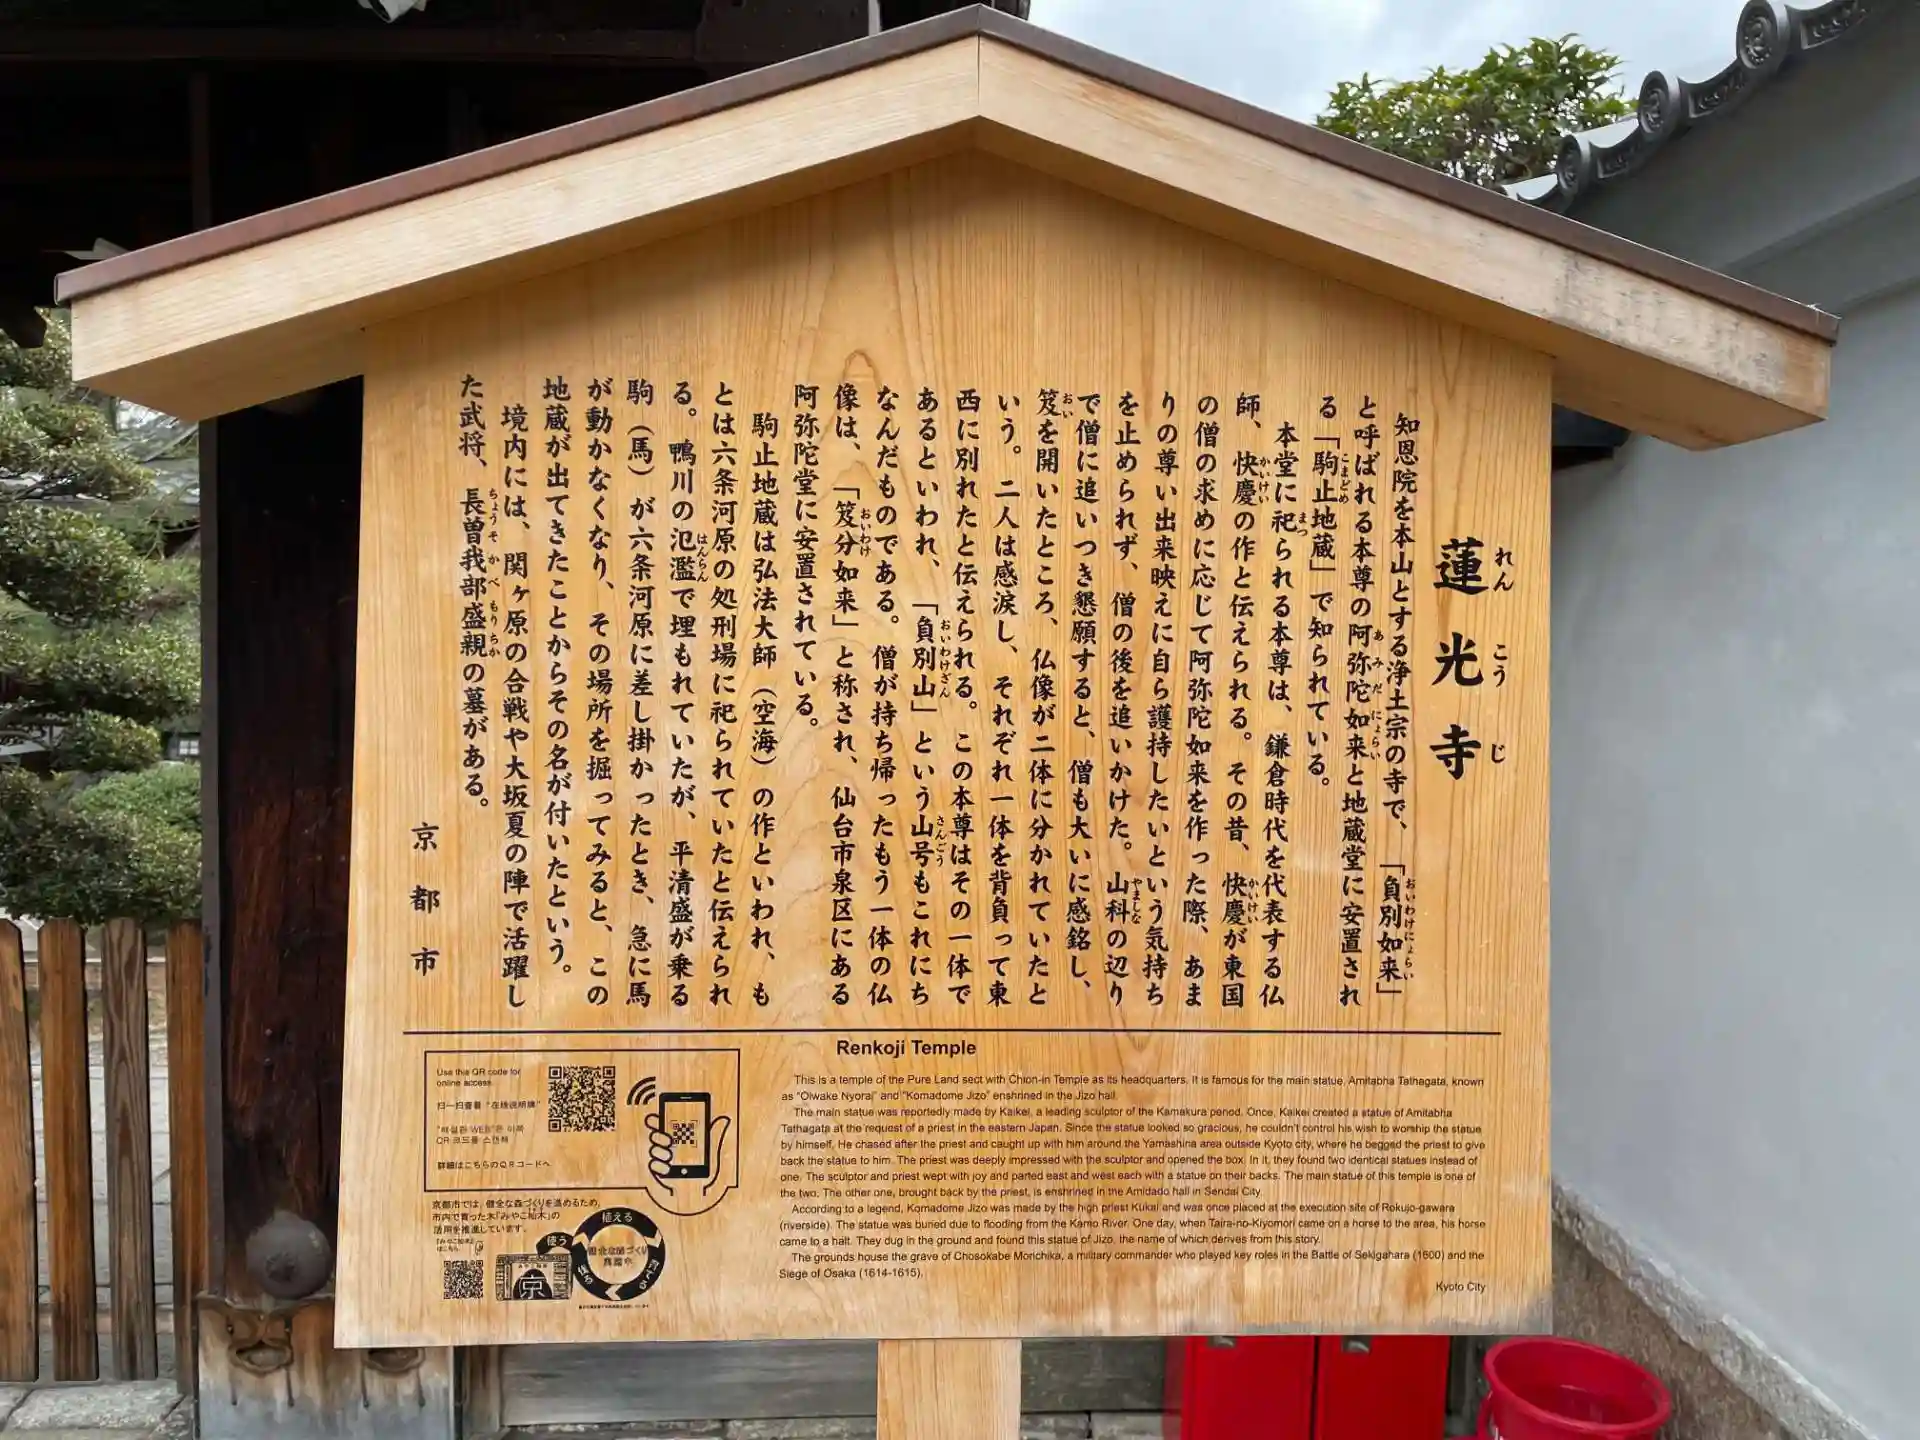 蓮光寺
れんこうじ
知恩院を本山とする浄土宗の寺で、「負別如来」
と呼ばれる本尊の阿弥陀如来と地蔵堂に安置され
る「駒止地蔵」で知られている。
本堂に祀られる本尊は、鎌倉時代を代表する仏
師、快慶の作と伝えられる。その昔、快慶が東国
の僧の求めに応じて阿弥陀如来を作った際、あま
りの尊い出来映えに自ら護持したいという気持ち
を止められず、僧の後を追いかけた。山科の辺り
で僧に追いつき懇願すると、僧も大いに感銘し、
笈を開いたところ、仏像が二体に分かれていたと
いう。二人は感涙し、それぞれ一体を背負って東
西に別れたと伝えられる。この本尊はその一体で
あるといわれ、「負別山」という山号もこれにち
なんだものである。僧が持ち帰ったもう一体の仏
像は、「笈分如来」と称され、仙台市泉区にある
阿弥陀堂に安置されている。
駒止地蔵は弘法大師（空海）の作といわれ、も
とは六条河原の処刑場に祀られていたと伝えられ
る。鴨川の氾濫で埋もれていたが、平清盛が乗る
駒（馬）が六条河原に差し掛かったとき、急に馬
が動かなくなり、その場所を掘ってみると、この
地蔵が出てきたことからその名が付いたという。
境内には、関ヶ原の合戦や大坂夏の陣で活躍し
た武将、長曽我部盛親の墓がある。
京都市
Renkoji Temple
This is a temple of the Pure Land sect with Chion-in Temple as its headquarters. It is famous for the main statue, Amitabha Tathagata, known
as "Oiwake Nyorai" and "Komadome Jizo" enshrined in the Jizo hall.
The main statue was reportedly made by Kaikei, a leading sculptor of the Kamakura period. Once, Kaikei created a statue of Amitabha
Tathagata at the request of a priest in the eastern Japan. Since the statue looked so gracious, he couldn't control his wish to worship the statue
by himself. He chased after the priest and caught up with him around the Yamashina area outside Kyoto city, where he begged the priest to give
back the statue to him. The priest was deeply impressed with the sculptor and opened the box. In it, they found two identical statues instead of
one. The sculptor and priest wept with joy and parted east and west each with a statue on their backs. The main statue of this temple is one of
the two. The other one, brought back by the priest, is enshrined in the Amidado hall in Sendai City.
According to a legend, Komadome Jizo was made by the high priest Kukai and was once placed at the execution site of Rokujo-gawara
(riverside). The statue was buried due to flooding from the Kamo River. One day, when Taira-no-Kiyomori came on a horse to the area, his horse
came to a halt. They dug in the ground and found this statue of Jizo, the name of which derives from this story.
The grounds house the grave of Chosokabe Morichika, a military commander who played key roles in the Battle of Sekigahara (1600) and the
Siege of Osaka (1614-1615).
Kyoto City
Use this QR code for
online access.
扫一扫查看“在线说明牌”
"해설판 WEB"은 이쪽
QR 코드를 스캔해
詳細はこちらのQRコードへ
京都市では、健全な森づくりを進めるため、
市内で育った木「みやこ杣木」の
活用を推進しています。
「みやこ杣木」
はこちら
植える
育てる
使う
京